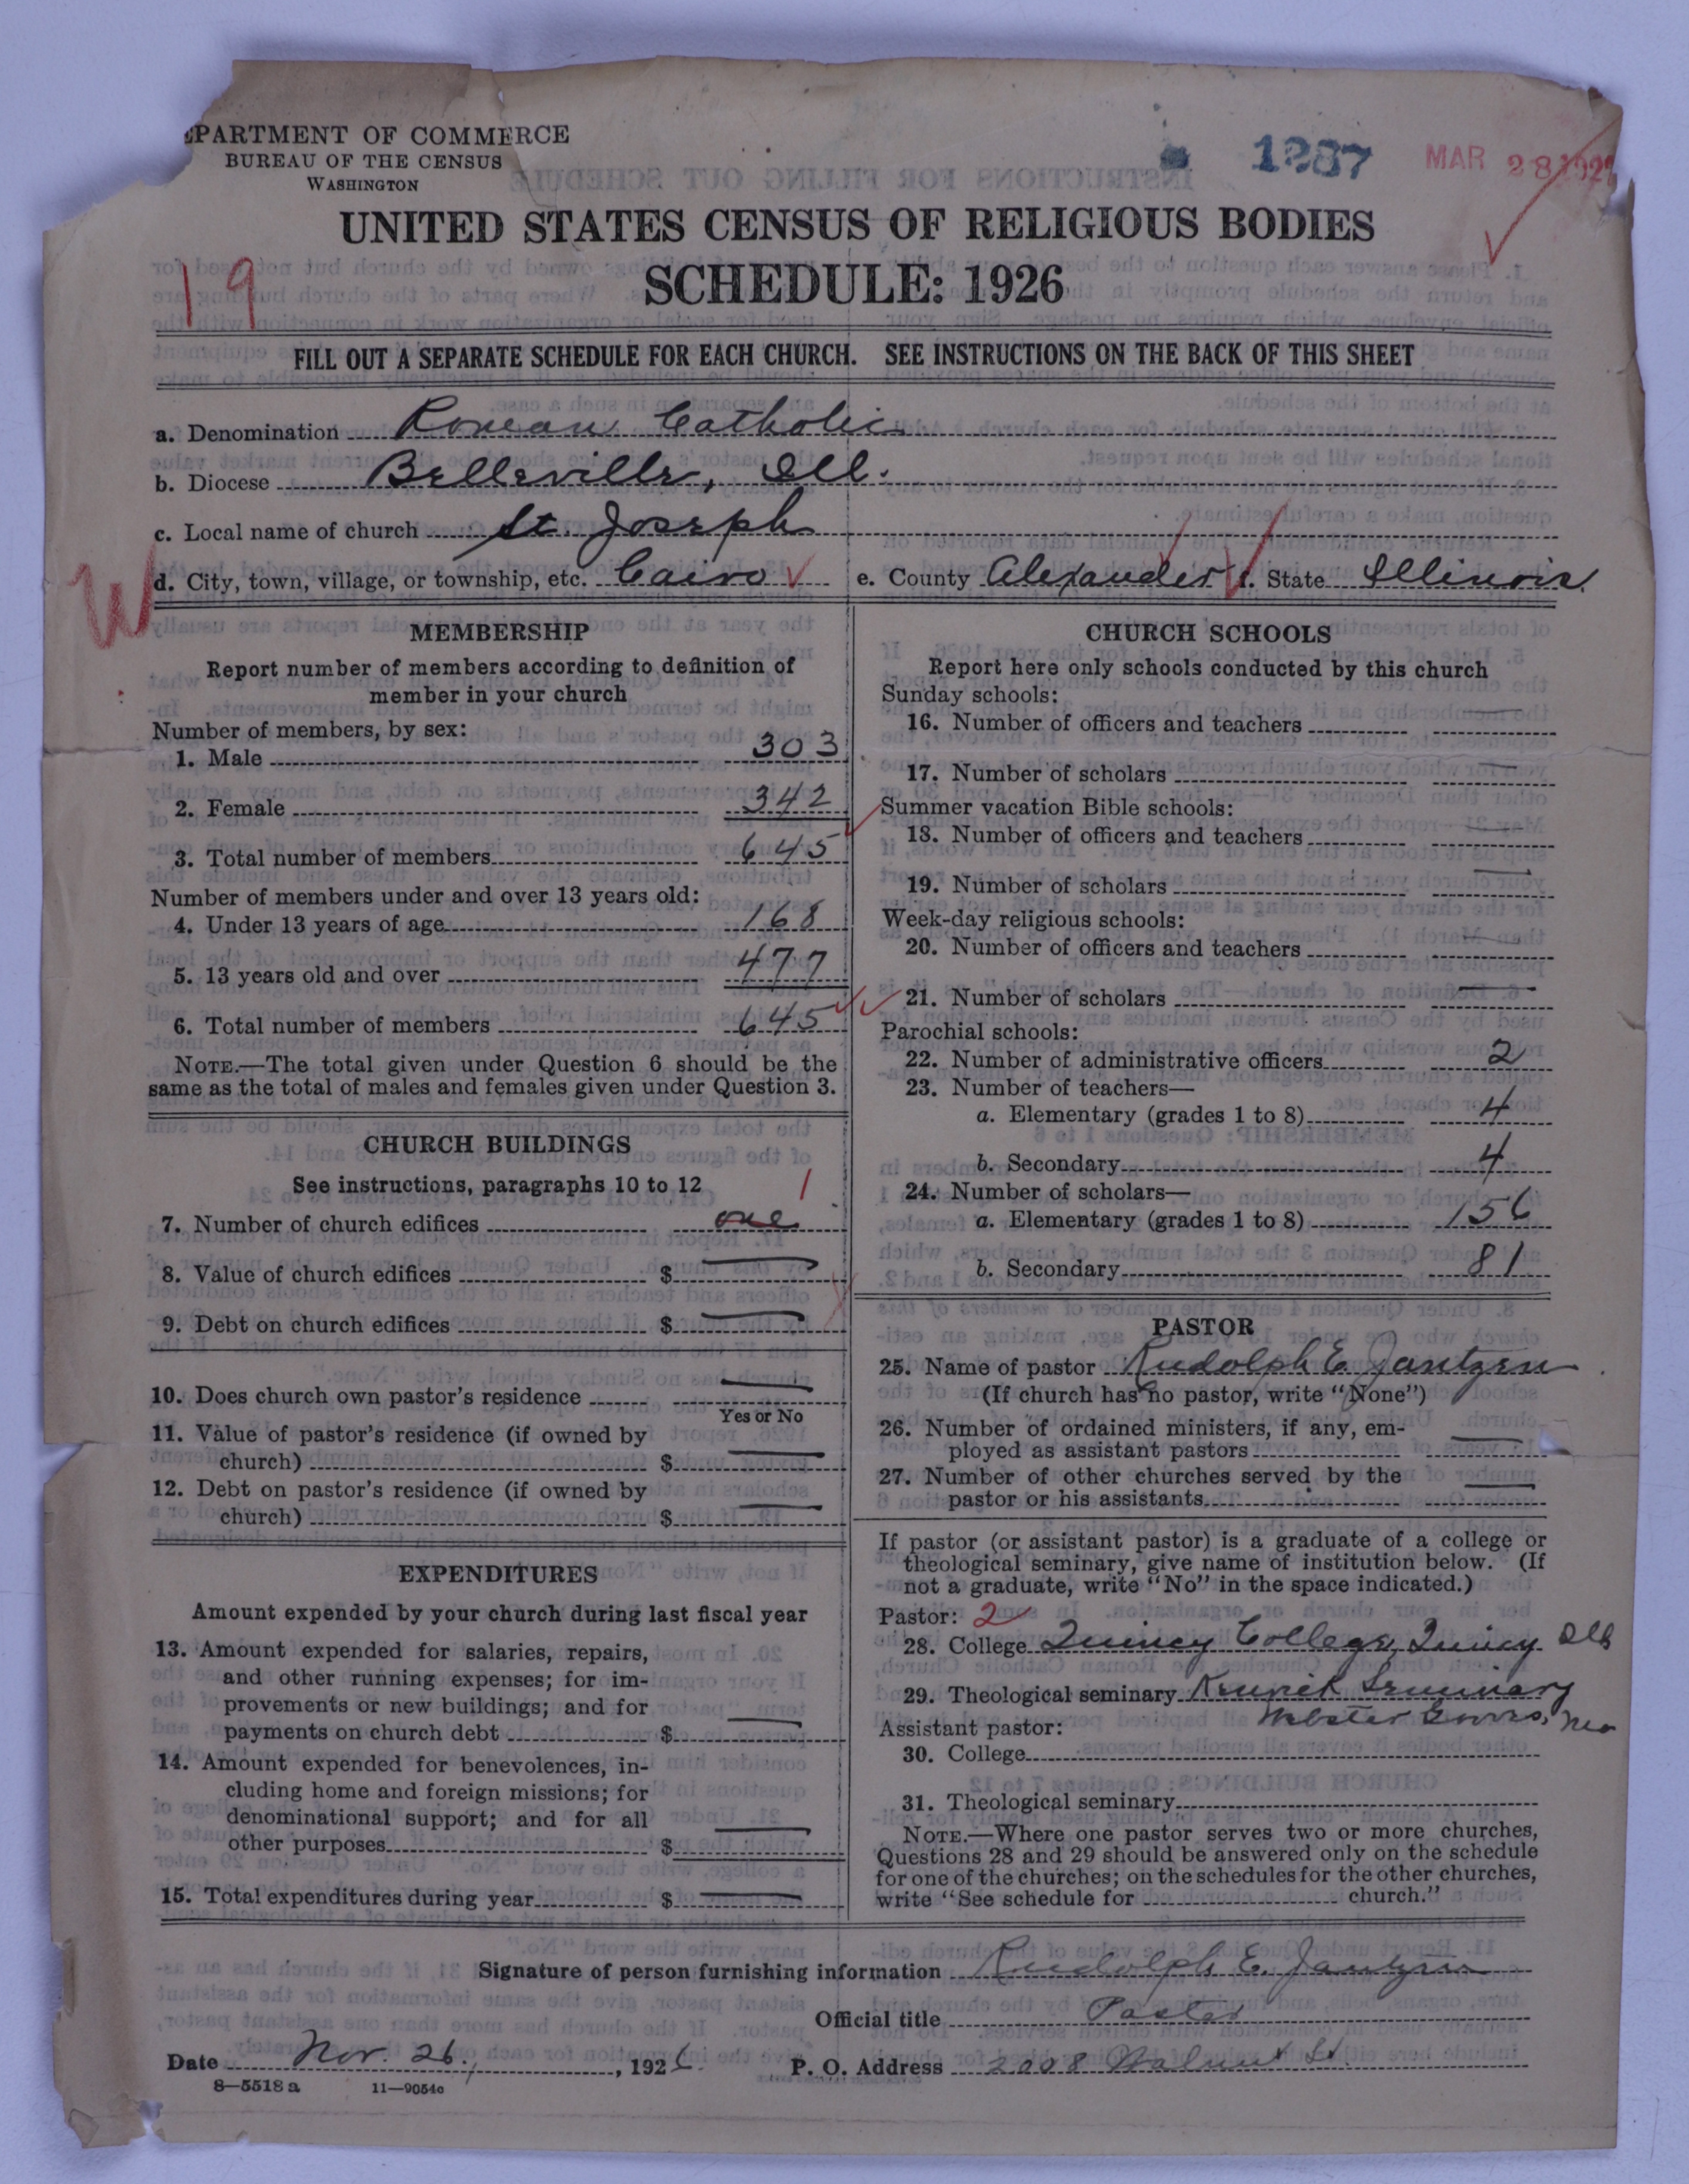 EPARTMENT OF COMMERCE
BUREAU OF THE CENSUS
WASHINGTON
1287
MAR 28 192
UNITED STATES CENSUS OF RELIGIOUS BODIES
19
SCHEDULE: 1926
FILL OUT A SEPARATE SCHEDULE FOR EACH CHURCH. SEE INSTRUCTIONS ON THE BACK OF THIS SHEET
a. Denomination Roman Catholic
b. Diocese Belleville, Ill.
c. Local name of church St. Joseph
W
d. City, town, village, or township, etc. Cairo e. County Alexander f. State Illinois.
MEMBERSHIP
Report number of members according to definition of
member in your church
Number of members, by sex:
1. Male 303
2. Female 342
3. Total number of members 645
Number of members under and over 13 years old:
4. Under 13 years of age 168
5. 13 years old and over 477
6. Total number of members 645
NOTE.—The total given under Question 6 should be the
same as the total of males and females given under Question 3.
CHURCH BUILDINGS
See instructions, paragraphs 10 to 12 1
7. Number of church edifices one
8. Value of church edifices $ —
9. Debt on church edifices $ —
10. Does church own pastor's residence —
Yes or No
11. Value of pastor's residence (if owned by
church) $ —
12. Debt on pastor's residence (if owned by
church) $ —
EXPENDITURES
Amount expended by your church during last fiscal year
13. Amount expended for salaries, repairs,
and other running expenses; for im-
provements or new buildings; and for
payments on church debt $ —
14. Amount expended for benevolences, in-
cluding home and foreign missions; for
denominational support; and for all
other purposes $ —
15. Total expenditures during year $ —
CHURCH SCHOOLS
Report here only schools conducted by this church
Sunday schools:
16. Number of officers and teachers —
17. Number of scholars —
Summer vacation Bible schools:
18. Number of officers and teachers —
19. Number of scholars —
Week-day religious schools:
20. Number of officers and teachers —
21. Number of scholars —
Parochial schools:
22. Number of administrative officers 2
23. Number of teachers—
a. Elementary (grades 1 to 8) 4
b. Secondary 4
24. Number of scholars—
a. Elementary (grades 1 to 8) 156
b. Secondary 81
PASTOR
25. Name of pastor Rudolph E. Jantzen
(If church has no pastor, write "None")
26. Number of ordained ministers, if any, em-
ployed as assistant pastors —
27. Number of other churches served by the
pastor or his assistants —
If pastor (or assistant pastor) is a graduate of a college or
theological seminary, give name of institution below. (If
not a graduate, write "No" in the space indicated.)
Pastor: 2
28. College Quincy College, Quincy Ill
29. Theological seminary Kenrick Seminary
Webster Groves, Mo
Assistant pastor:
30. College
31. Theological seminary
NOTE.—Where one pastor serves two or more churches,
Questions 28 and 29 should be answered only on the schedule
for one of the churches; on the schedules for the other churches,
write "See schedule for church."
Signature of person furnishing information Rudolph E. Jantzen
Official title Pastor
Date Nov. 26, 1926 P. O. Address 2008 Walnut St.
8—5518 a 11—9054c